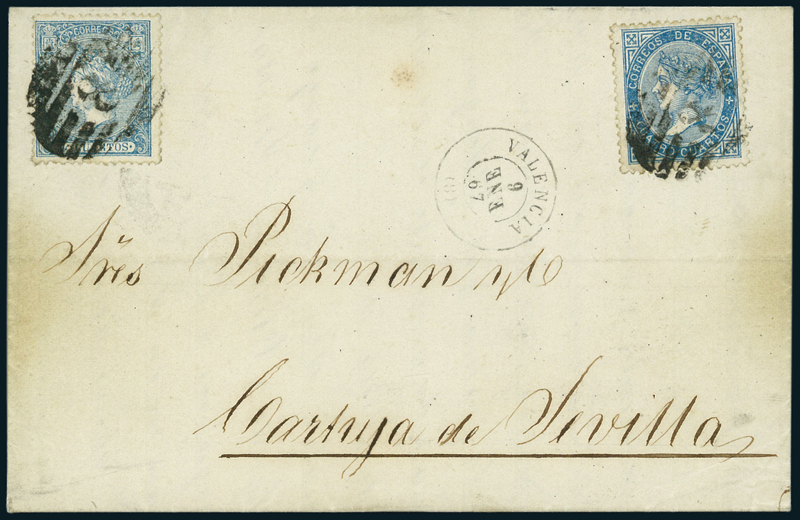 CORREOS
CUARTOS
CORREOS DE ESPAÑA
CUATRO CUARTOS
VALENCIA
9
ENE
67
Sres Pickman y C
Cartuja de Sevilla